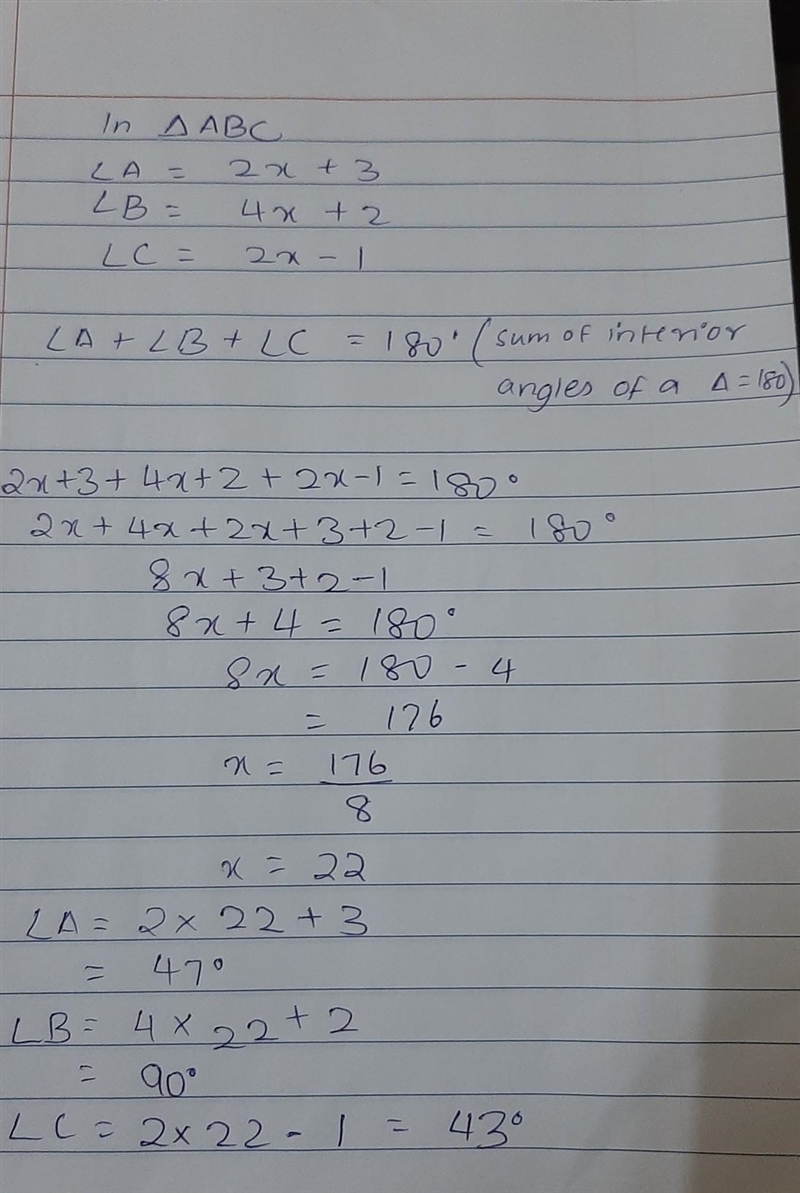 In △ABC
∠A = 2x + 3
∠B = 4x + 2
∠C = 2x - 1
∠A + ∠B + ∠C = 180° (sum of interior
angles of a △ = 180)
2x+3+4x+2+2x-1=180°
2x+4x+2x+3+2-1 = 180°
8x+3+2-1
8x+4 = 180°
8x = 180 - 4
= 176
x = 176
8
x = 22
∠A = 2 × 22 + 3
= 47°
∠B = 4 × 22 + 2
= 90°
∠C = 2×22 - 1 = 43°